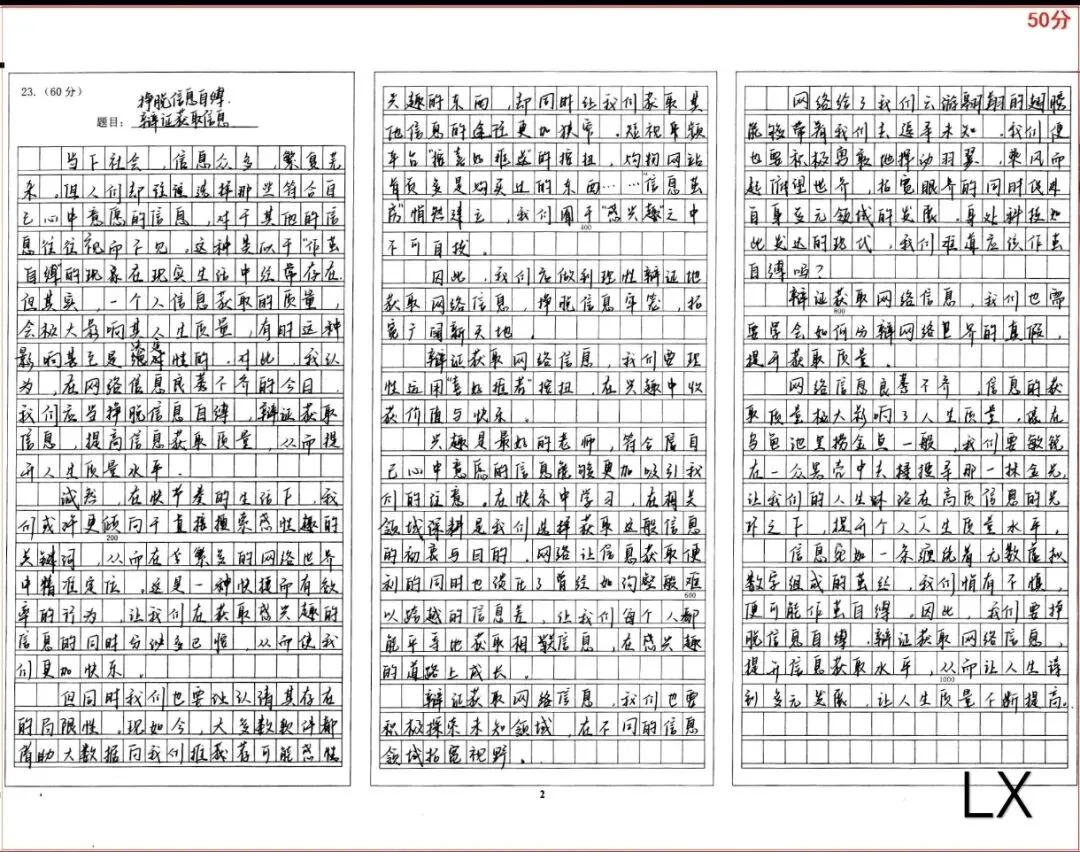 50分
23.（60分）
掙脱信息自缚，
题目：辩证获取信息
当下社会，信息众多，繁复芜
杂。但人们却往往选择那些符合自
己心中意愿的信息，对于其他的信
息往往视而不见。这种类似于“作茧
自缚”的现象在现实生活中经常存在。
但其实，一个人信息获取的质量，
会极大影响其人生质量，有时这种
影响甚至是绝对性的。对此，我认
为，在网络信息良莠不齐的今日，
我们应当挣脱信息自缚，辩证获取
信息，提高信息获取质量，从而提
升人生质量水平。
诚然，在快节奏的生活下，我
们或许更倾向于直接搜索感兴趣的
200
关键词，从而在繁复的网络世界
中精准定位。这是一种快捷而有效
率的行为，让我们在获取感兴趣的
信息的同时分泌多巴胺，从而使我
们更加快乐。
但同时我们也要认清其存在
的局限性。现如今，大多数软件都
借助大数据向我们推荐可能感性
兴趣的东西，却同时让我们获取其
他信息的途径更加狭窄。短视频
平台“喜好推荐”的按扭，购物网站
首页实是购买过的东西……“信息茧
房”悄然建立，我们囿于“感兴趣”之中
400
不可自拔。
因此，我们应做到理性辩证地
获取网络信息，挣脱信息牢笼，拓
宽广阔新天地。
辩证获取网络信息，我们要理
性运用“喜好推荐”按扭，在兴趣中收
获价值与快乐。
兴趣是最好的老师，符合信自
己心中意愿的信息能够更加吸引我
们的注意。在快乐中学习，在相关
领域深耕是我们选择获取这般信息
的初衷与目的。网络让信息获取便
利的同时也淡化了曾经如沟壑般难
600
以跨越的信息差，让我们每个人都
能平等地获取相关信息，在感兴趣
的道路上成长。
辩证获取网络信息，我们也要
积极探索未知领域，在不同的信息
领域拓宽视野。
2
网络给了我们云游翱翔的翅膀
能够带着我们去追寻未知。我们便
也要积极勇敢地挥动羽翼，乘风而
起俯瞰世界，拓宽眼界的同时促进
自身多元领域的发展。身处科技如
此发达的现代，我们难道应该作茧
自缚吗？
辩证获取网络信息，我们也需
800
要学会如何分辨网络世界的真假，
提升获取质量。
网络信息良莠不齐，信息的获
取质量极大影响了人生质量。像在
乌色池里捞金点一般，我们要敏锐
在一众黑壳中去搜捞寻那一抹金光，
让我们的人生脉络在高质信息的光
环之下，提升个人人生质量水平。
信息宛如一条缠绕着无数虚拟
数字组成的茧丝，我们稍有不慎，
便可能作茧自缚。因此，我们要挣
脱信息自缚，辩证获取网络信息，
提升信息获取水平，从而让人生得
1000
到多元发展，让人生质量不断提高。
LX